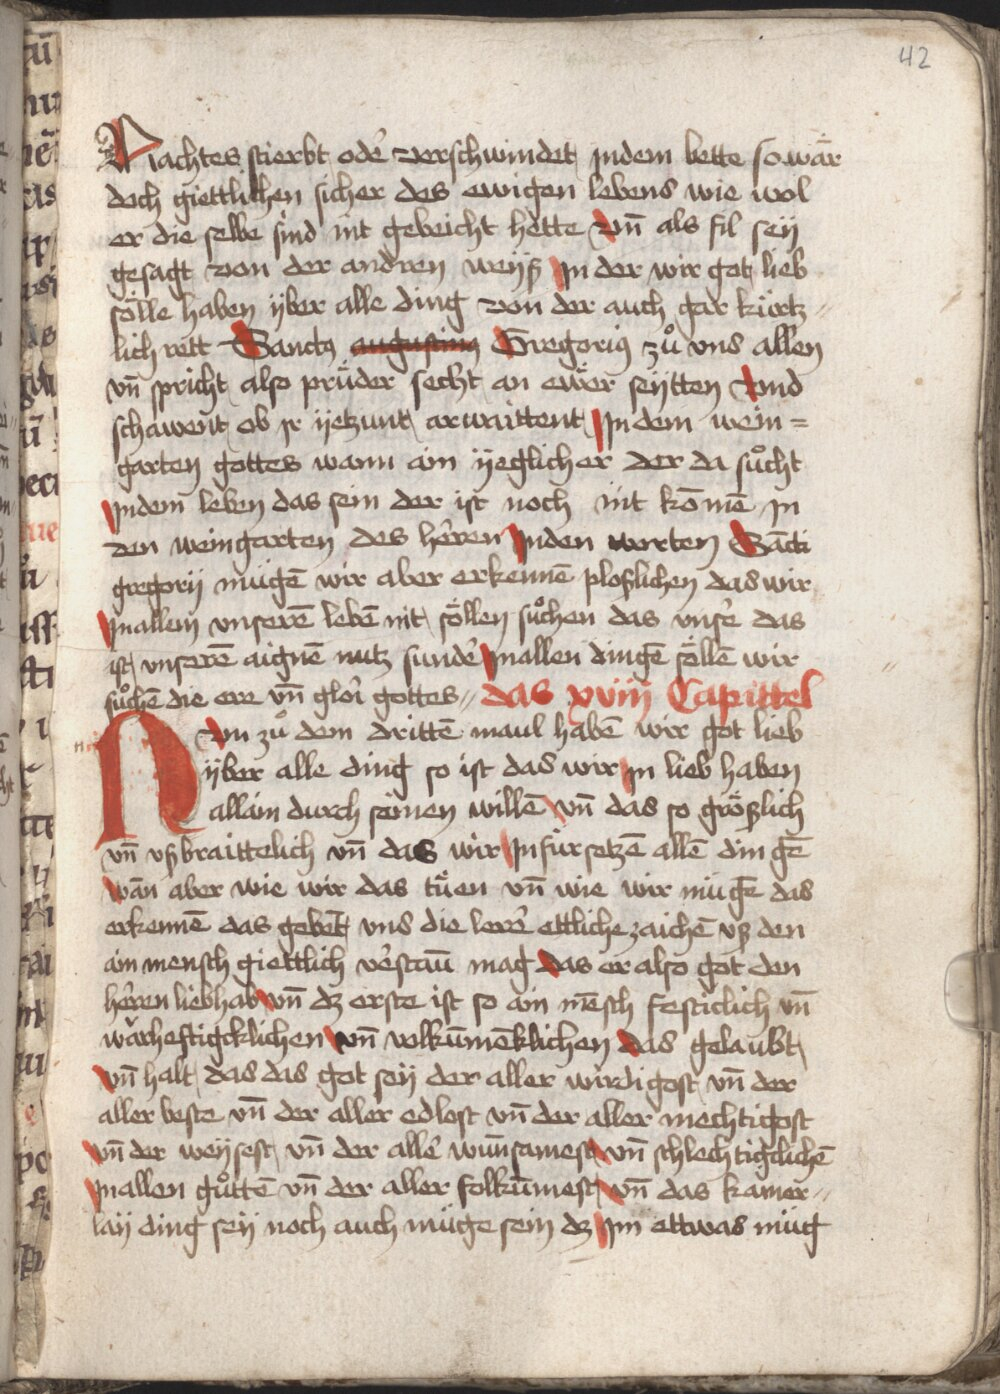 42
Nachtes stierbt odẽ verschwindet indem bette so wär
doch giettlichen sicher des ewigen lebens wie wol
er die selbe sind nit gebeicht hette vn̄ als fil seÿ
gesagt von der andren weÿß in der wir got lieb
sölle haben ÿber alle ding von der auch gar kürtz〃
lich rett Sanctꝯ augustinꝯ Gregoriꝯ zuͦ vns allen
vn̄ spricht also prüder secht an ewer seÿtten vnd
schawent ob ir ÿetzunt arwaittent In dem wein=
garten gottes wann ain ÿeglicher der da suͦcht
Indem leben das sein der ist noch nit kōmē in
den weingarten des herren Inden worten Sācti
gregorÿ mügē wir aber erkennē ploßlichen das wir
Inallem vnserē lebē nit söllen suͦchen das vnsẽ das
ist vnserē aignē nutz sundẽ Inallen dingē söllē wir
suͦchē die ere vn̄ glori gottes〃 das xviij Capittel
Nvn zuͦ dem drittē maul habē wir got lieb
ÿber alle ding so ist das wir in lieb haben
allain durch seinen willē vn̄ das so größlich
vn̄ vßbraittelich vn̄ das wir In für setzē allē dingē
wān aber wie wir das tüen vn̄ wie wir mügē das
erkennē das gebet vns die lerẽ ettliche zaichē vß den
ain mensch giettlich vẽstāū mag das er also got den
herren liebhab vn̄ dz erste ist so ain mēsch festiclich vn̄
wärheftigcklichen vn̄ volkūmēklichen das gelaubt
vn̄ halt das das got seÿ der aller wirdigost vn̄ der
aller beste vn̄ der aller edlost vn̄ der aller mechtigost
vn̄ der weÿsest vn̄ der allẽ wun̄samest vn̄ schlechtigclichē
Inallen guͦttē vn̄ der aller folkūmest vn̄ das kainer〃
laÿ ding seÿ noch auch müge sein dz Im ettwas müg